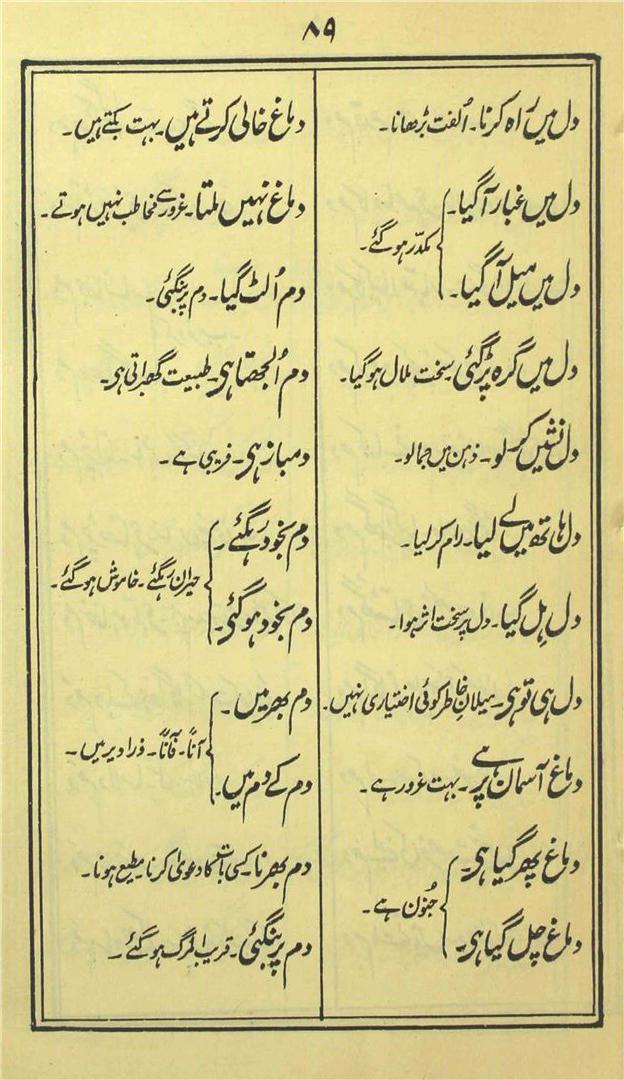 ۸۹
دل میں راہ کرنا۔ اُلفت بڑھانا۔
دل میں غبار آگیا۔
دل میں میل آگیا۔
مکدّر ہوگئے۔
دل میں گرہ پڑگئی۔ سخت ملال ہوگیا۔
دل نشیں کرلو۔ ذہن میں جمالو۔
دل ہاتھ میں لے لیا۔ رام کرلیا۔
دل ہِل گیا۔ دل پر سخت اثر ہوا۔
دل ہی تو ہی۔ میلانِ خاطر کوئی اختیاری نہیں۔
دماغ آسمان پر ہے۔ بہت غرور ہے۔
دماغ پھر گیا ہی۔
دماغ چل گیا ہی۔
جُنون ہے۔
دماغ خالی کرتے ہیں۔ بہت بکتے ہیں۔
دماغ نہیں ملتا۔ غرور سے مخاطب نہیں ہوتے۔
دم اُلٹ گیا۔ دم پر بنگئی۔
دم اُلجھتا ہی۔ طبیعت گھبراتی ہی۔
دمباز ہی۔ فریبی ہے۔
دم بخود رہگئے۔
دم بخود ہوگئی۔
حیران رہگئے۔ خاموش ہوگئے۔
دم بھر میں۔
دم کے دم میں۔
آناً۔ فآناً۔ ذرا دیر میں۔
دم بھرنا۔ کسی بات کا دعویٰ کرنا۔ مطیع ہونا۔
دم پر بنگئی۔ قریب المرگ ہوگئے۔